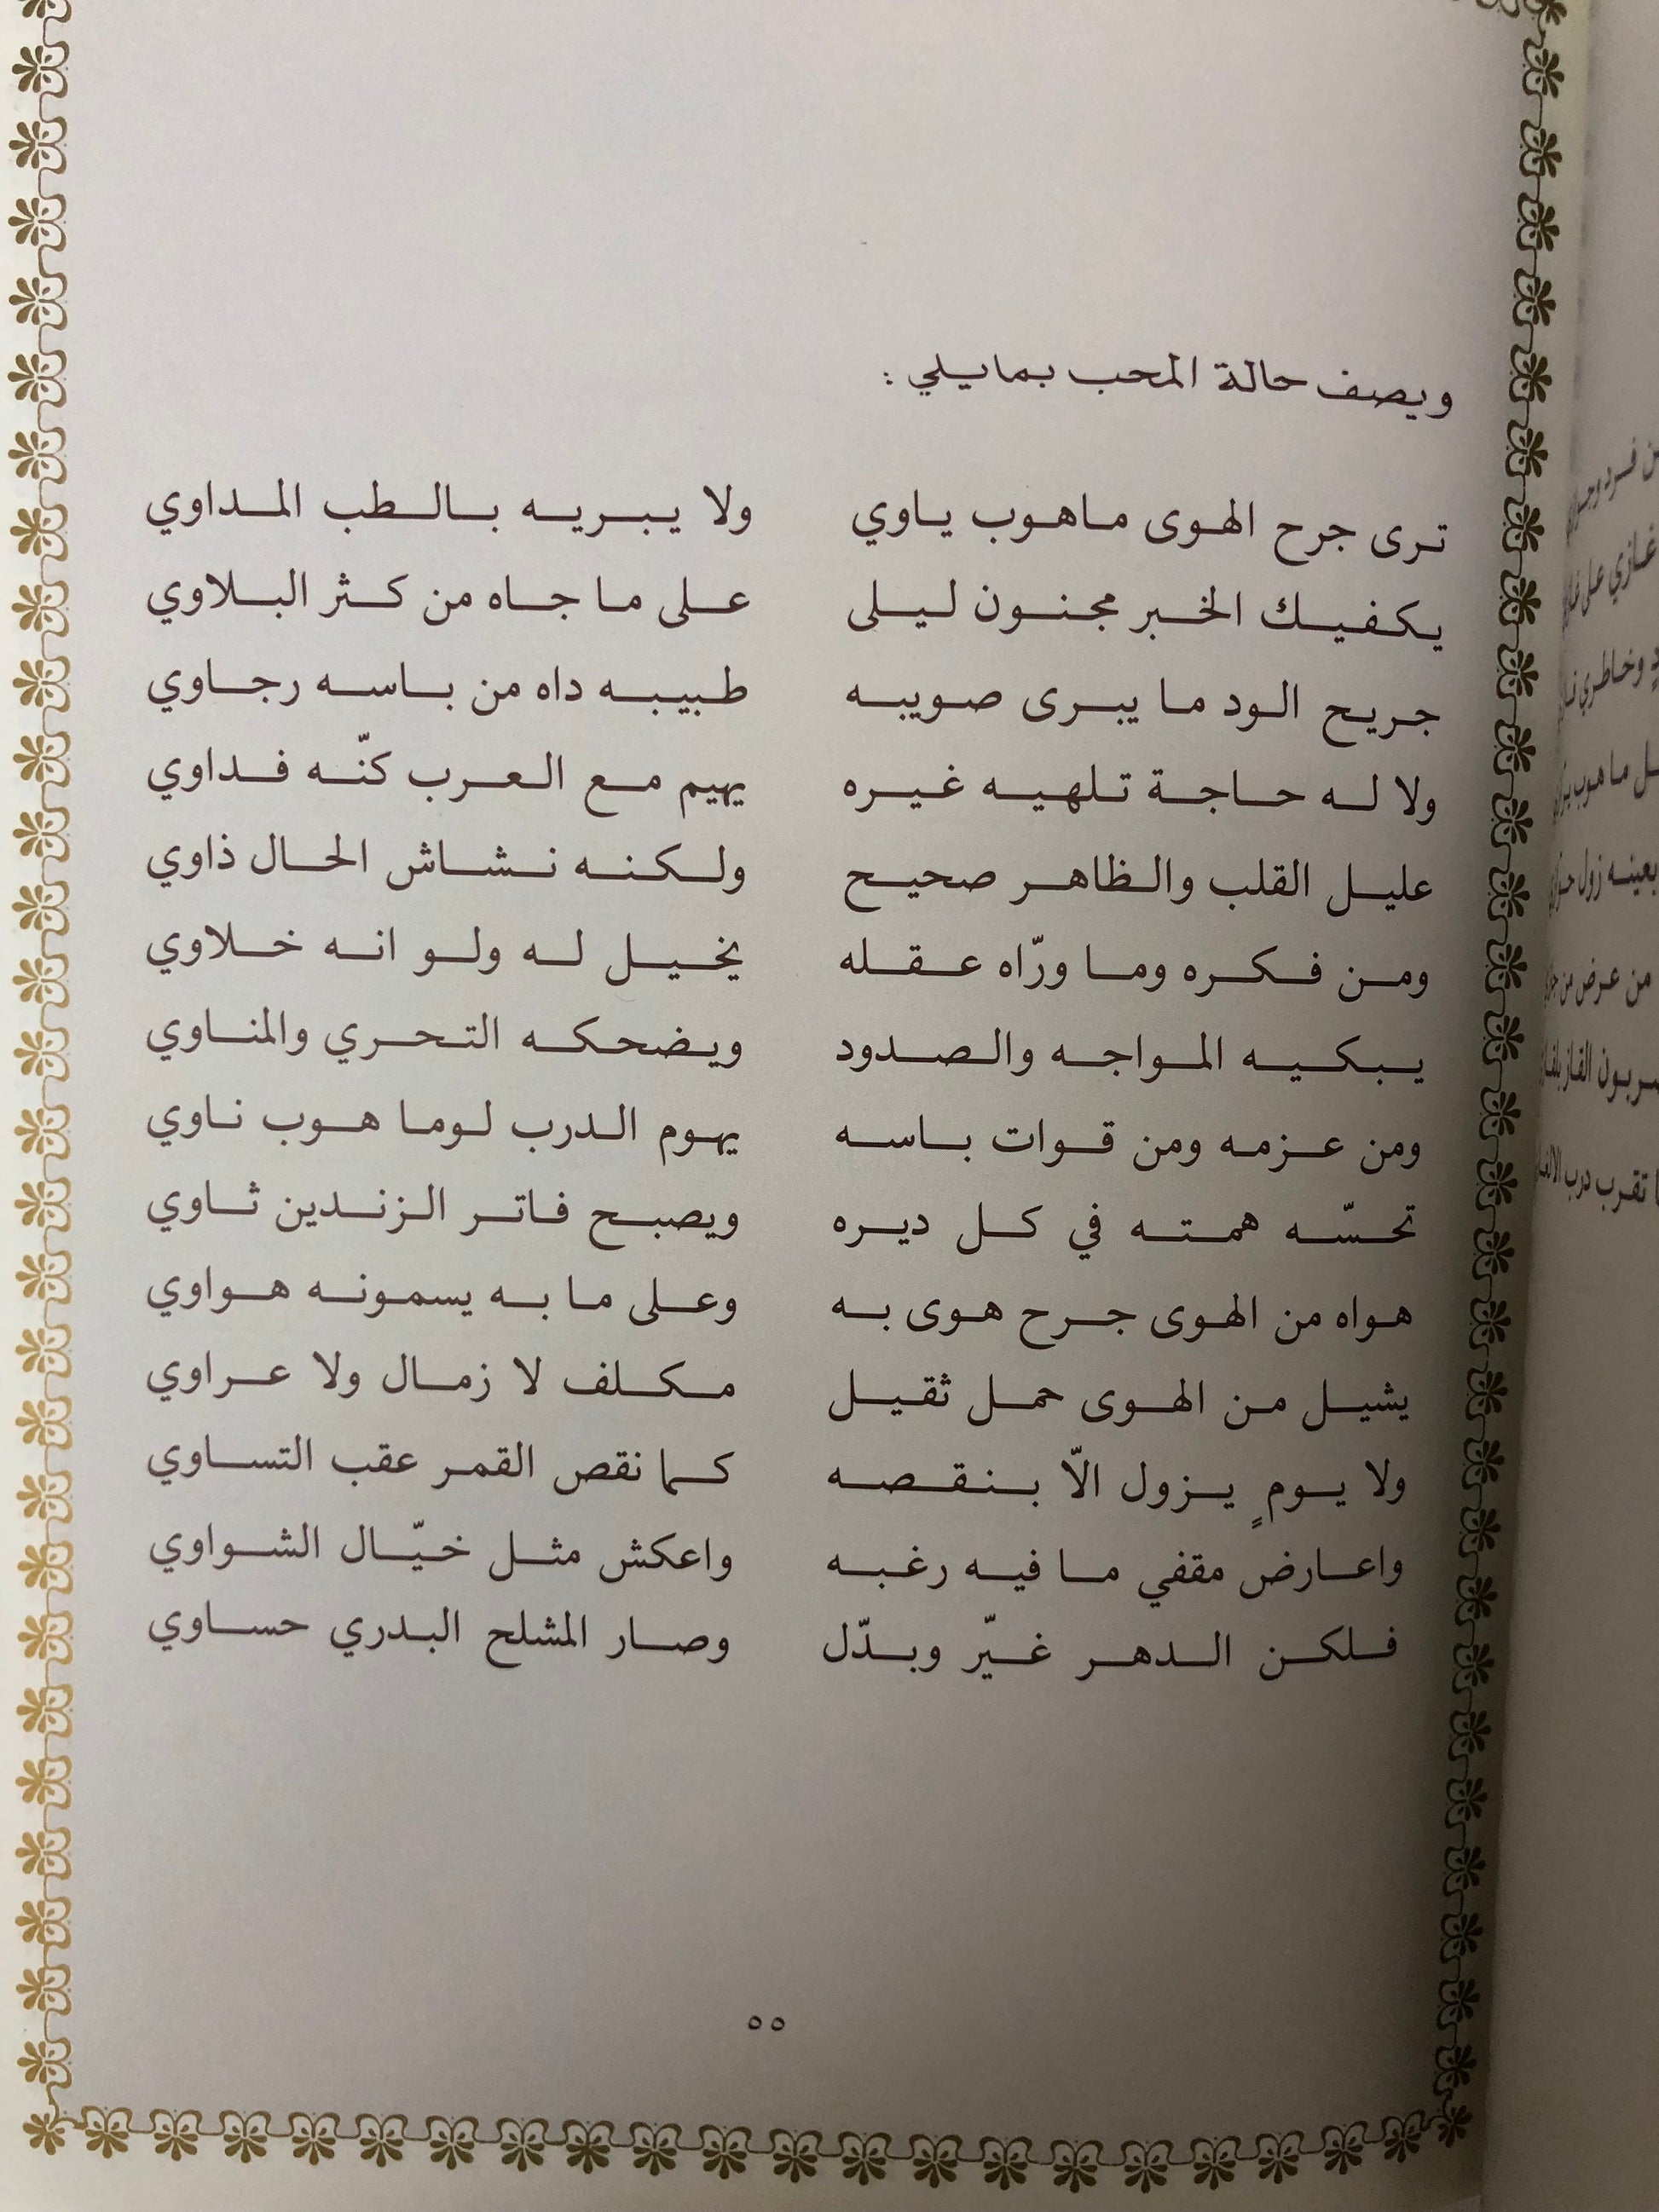 ويصف حالة المحب بمايلي :
ترى جرح الهوى ماهوب ياوي ولا يبريه بالطب المداوي
يكفيك الخبر مجنون ليلى على ما جاه من كثر البلاوي
جريح الود ما يبرى صويبه طبيبه داه من باسه رجاوي
ولا له حاجة تلهيه غيره يهيم مع العرب كنّه فداوي
عليل القلب والظاهر صحيح ولكنه نشاش الحال ذاوي
ومن فكره وما ورّاه عقله يخيل له ولو انه خلاوي
يبكيه المواجه والصدود ويضحكه التحري والمناوي
ومن عزمه ومن قوات باسه يهوم الدرب لوما هوب ناوي
تحسّه همته في كل ديره ويصبح فاتر الزندين ثاوي
هواه من الهوى جرح هوى به وعلى ما به يسمونه هواوي
يشيل من الهوى حمل ثقيل مكلف لا زمال ولا عراوي
ولا يومٍ يزول الاّ بنقصه كما نقص القمر عقب التساوي
واعارض مقفي ما فيه رغبه واعكش مثل خيّال الشواوي
فلكن الدهر غيّر وبدّل وصار المشلح البدري حساوي
٥٥